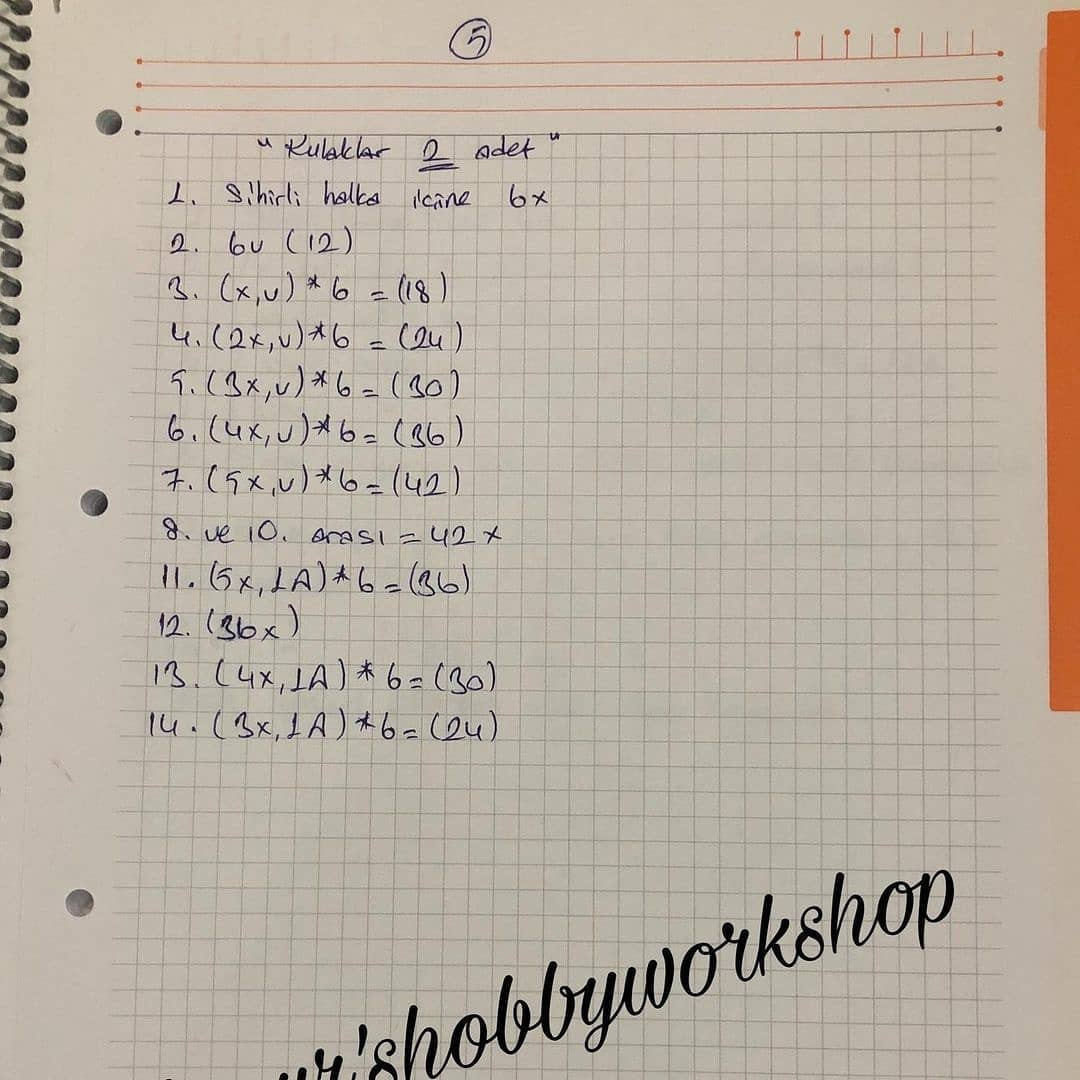 5
"Kulaklar 2 adet"
1. Sihirli halka içine 6x
2. 6v (12)
3. (x,v)*6 = (18)
4. (2x,v)*6 = (24)
5. (3x,v)*6 = (30)
6. (4x,v)*6 = (36)
7. (5x,v)*6 = (42)
8. ve 10. arası = 42x
11. (5x,1A)*6 = (36)
12. (36x)
13. (4x,1A)*6 = (30)
14. (3x,1A)*6 = (24)
'shobbyworkshop